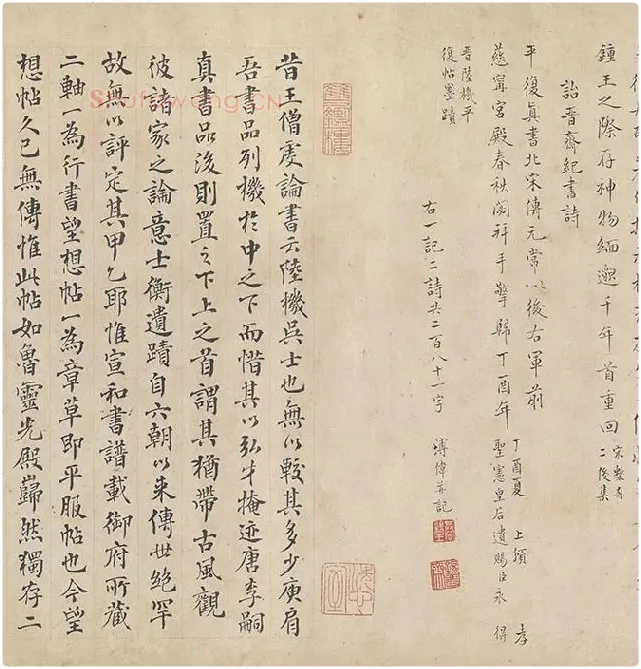 鍾王之際存神物緬邈千年首重回 宋槧有
二俊集
詒晉齋紀書詩
平復真書北宋傳元常以後右軍前 丁酉夏 上頒 孝
慈寧宮殿春秋閱拜手擎歸丁酉年 聖憲皇后遺賜臣永 得
晉陸機平
復帖墨蹟
右一記二詩共二百八十一字 溥偉并記
昔王僧虔論書云陸機吳士也無以較其多少庾肩
吾書品列機於中之下而惜其以弘才掩迹唐李嗣
真書品後則置之下上之首謂其猶帶古風觀
彼諸家之論意士衡遺蹟自六朝以來傳世絕罕
故無以評定其甲乙耶惟宣和書譜載御府所藏
二軸一為行書望想帖一為章草即平復帖也今望
想帖久已無傳惟此帖如魯靈光殿巋然獨存二
Shufawang.CN